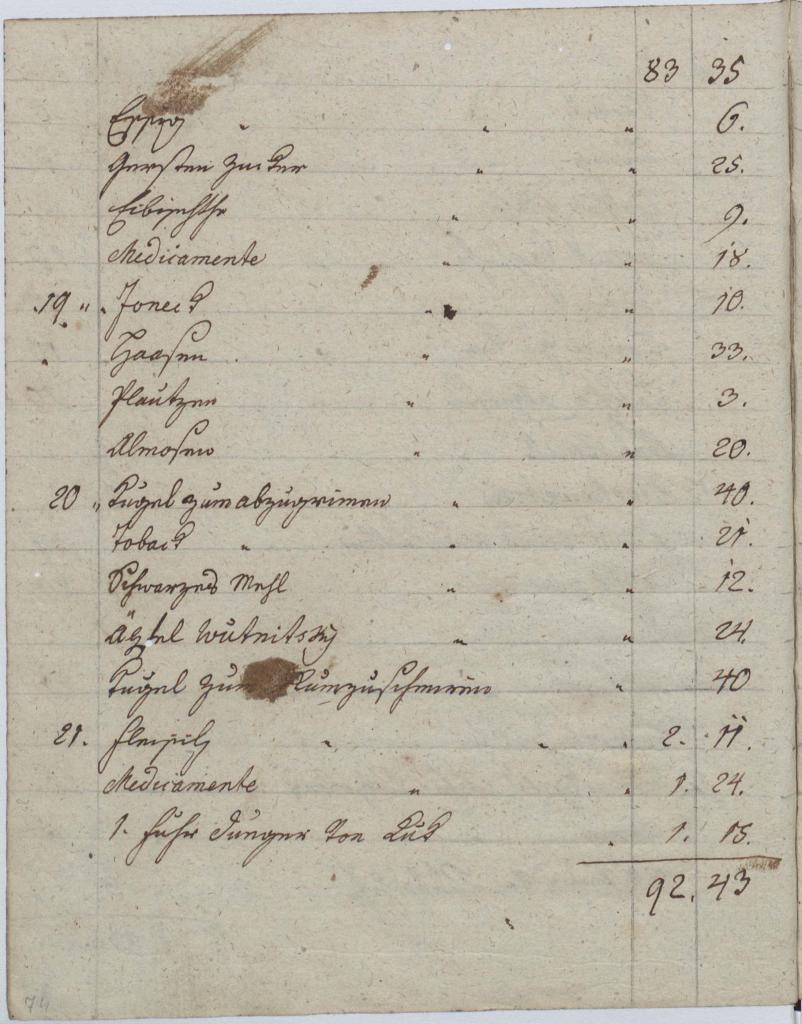 83 35
Essig " " " 6.
Gersten Zucker " " 25.
Eibischthe " " 9.
Medicamente " " 18.
19 " Joneck " " 10.
" Haasen " " 33.
Plautzen " " 3.
Almosen " " 20.
20 " Kugel zum abzugrimen " " 40.
Toback " " " 21.
Schwarzes Mehl " " 12.
Äpfel Wutnitsky " " 24.
Kugel zum " 40
21. Fleisch " " " 2. 11.
Medicamente " " 1. 24.
1. Fuhr Dunger Ton Kuk " 1. 15.
92. 43
74